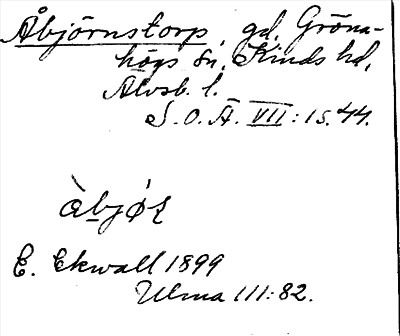 Åbjörnstorp, gd, Gröna-
högs sn, Kinds hd,
Älvsb. l.
S. O. Ä. VII: 1 s. 44.
àbjǿʀ
E. Ekwall 1899
Ulma 111:82.